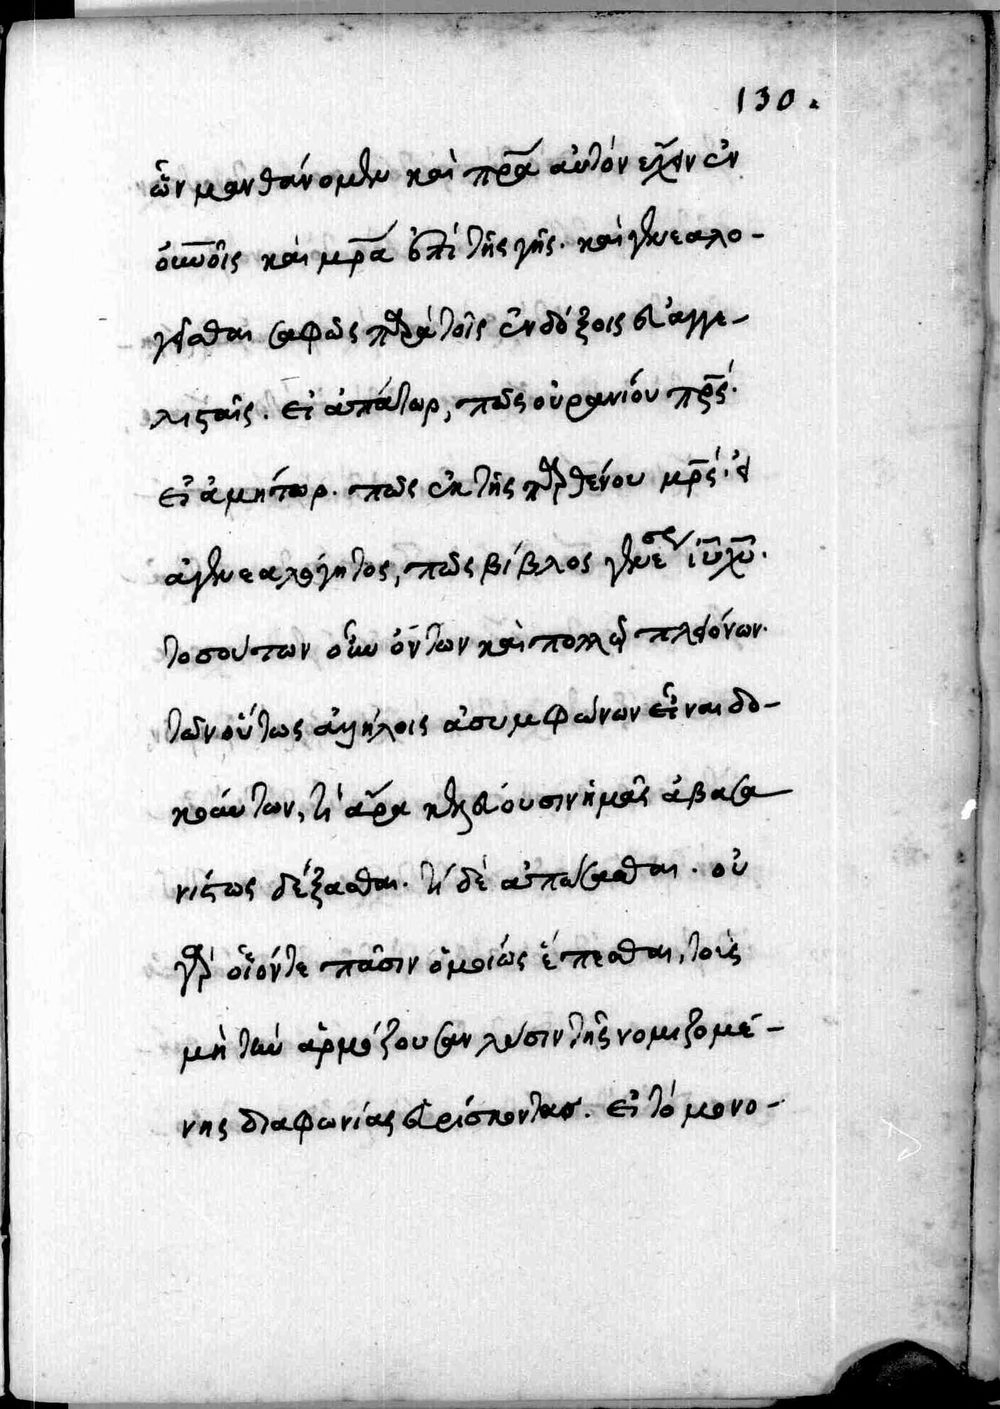 130.
ὧν μανθάνομεν καὶ πρ̅α αὐτὸν ἔχειν ἐν
οὐν̅οῖς καὶ μρ̅α ἐπὶ τῆς γῆς. καὶ γενεαλο-
γεῖσθαι σαφῶς παρὰ τοῖς ἐνδόξοις εὐαγγε-
λισταῖς. εἰ ἀπάτωρ, πῶς οὐρανίου πρ̅ς.
εἰ ἀμήτωρ. πῶς ἐκ τῆς παρθένου μρ̅ς. εἰ
ἀγενεαλόγητος, πῶς βίβλος γενέσεως ἰ̅υ χ̅υ.
τοσούτων οὖν ὄντων καὶ πολλῷ πλειόνων.
τῶν οὕτως ἀλλήλοις ἀσυμφώνων εἶναι δο-
κούντων, τί ἄρα κελεύουσιν ἡμᾶς ἀβασα
νίστως δέξασθαι. τί δὲ ἀπώσασθαι. οὐ
γὰρ οἷόντε πᾶσιν ὁμοίως ἕπεσθαι, τοὺς
μὴ τὴν ἁρμόζουσαν λύσιν τῆς νομιζομέ-
νης διαφωνίας εὑρίσκοντας. εἰ τὸ μονο-